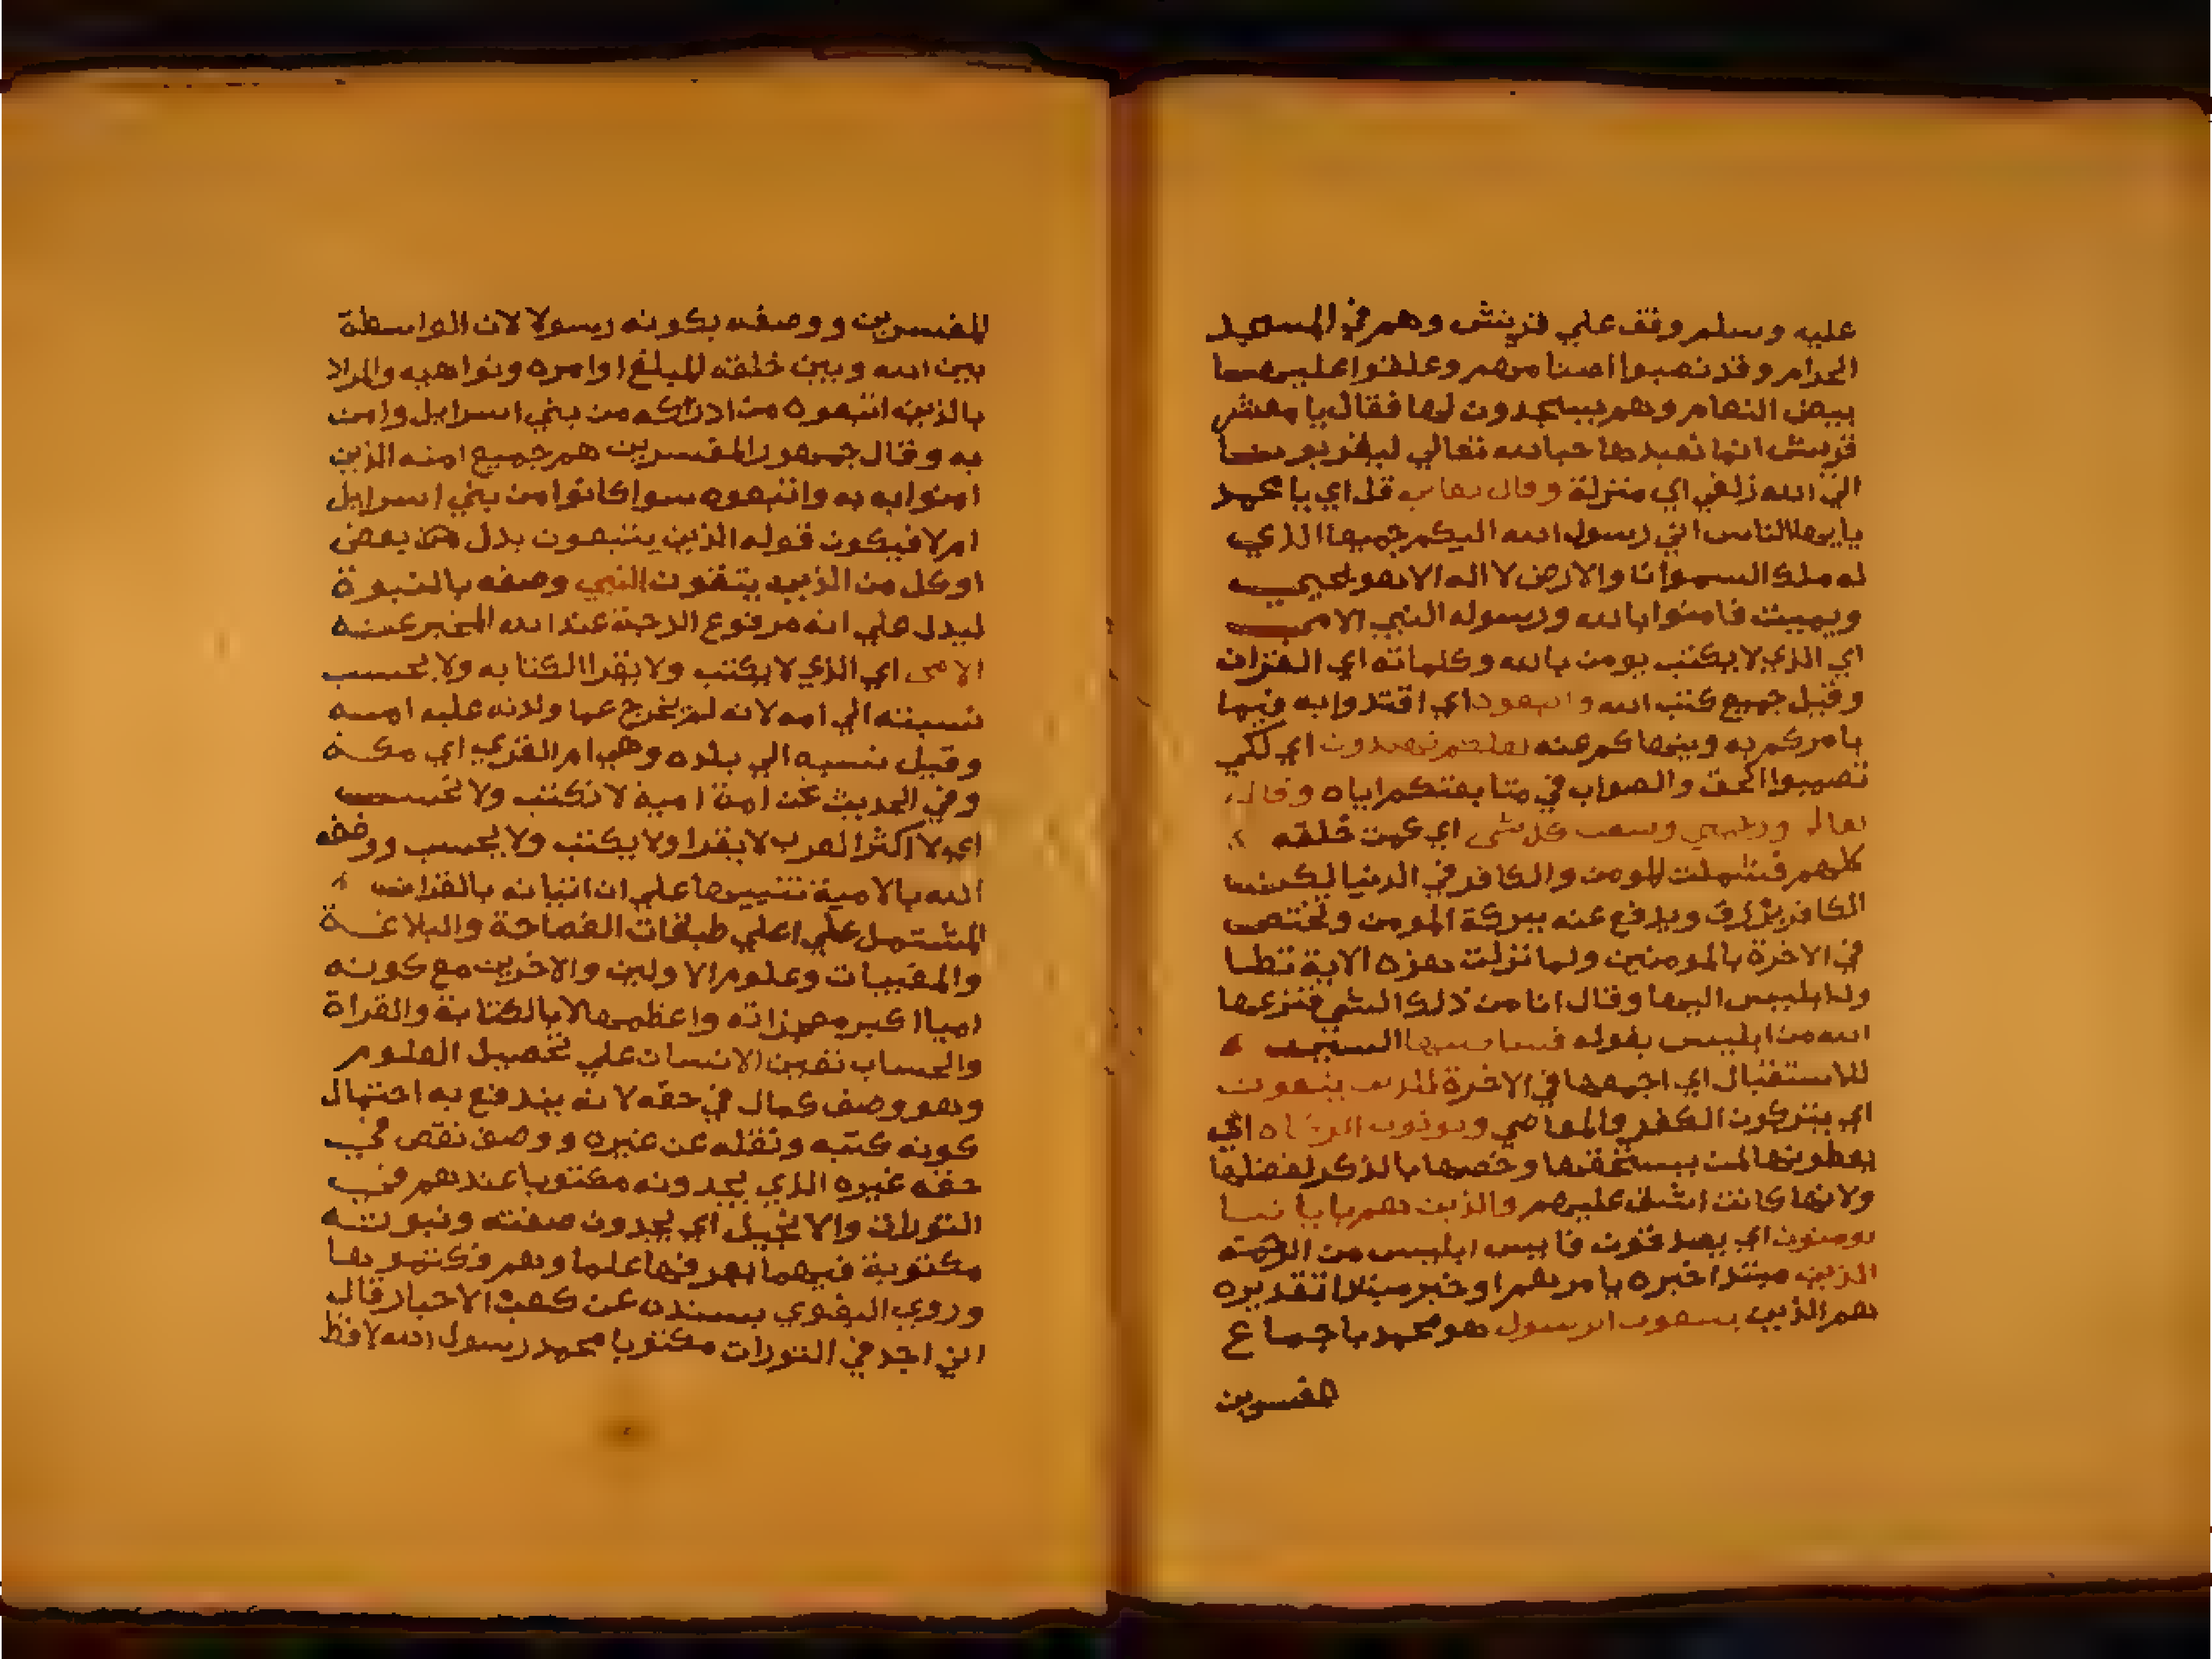 عليه وسلم وقف علي قريش وهم في المسجد
الحرام وقد نصبوا اصنامهم وعلقوا عليهما
بيض النعام وهم يسجدون لها فقال يا معشر
قريش انما نعبدها حبا لله تعالي ليقربونا
الي الله زلفي اي منزلة وقال تعالي قل اي يا محمد
يا ايها الناس اني رسول الله اليكم جميعا الذي
له ملك السموات والارض لا اله الا هو يحيي
ويميت فامنوا بالله ورسوله النبي الامي
اي الذي لا يكتب يومن بالله وكلماته اي القران
وقيل جميع كتب الله واتبعوه اي اقتدوا به فيما
يامركم به وينهاكم عنه لعلكم تهتدون اي لكي
تصيبوا الحق والصواب في متابعتكم اياه وقال
تعالي ورحمتي وسعت كل شي اي عمت خلقه
كلهم فشملت المومن والكافر في الدنيا لكن
الكافر يرزق ويدفع عنه ببركة المومن وتختص
في الاخرة بالمومنين ولما نزلت هذه الاية تطا
ول ابليس اليها وقال انا من ذلك الشي فنزعها
الله من ابليس بقوله فساكتبها السين
للاستقبال اي اجمعها في الاخرة للذين يتقون
اي يتركون الكفر والمعاصي ويوتون الزكاه اي
يعطونها لمن يستحقها وخصها بالذكر لفضلها
ولانها كانت اشق عليهم والذين هم باياتنا
يومنون اي يصدقون فايس ابليس من الرحمة
الذين مبتدا خبره يامرهم او خبر مبتدا تقديره
هم الذين يتبعون الرسول هو محمد باجماع
المفسرين
المفسرين ووصفه بكونه رسولا لان الواسطة
بين الله وبين خلقه المبلغ اوامره ونواهيه والمراد
بالذين اتبعوه من ادركه من بني اسرايل وامن
به وقال جمهور المفسرين هم جميع امته الذين
امنوا به واتبعوه سوا كانوا من بني اسرايل
ام لا فيكون قوله الذين يتبعون بدل من بعض
او كل من الذين يتقون النبي وصفه بالنبوة
ليدل علي انه مرفوع الدرجة عند الله المخبر عنه
الامي اي الذي لا يكتب ولا يقرا الكتابه ولا يحسب
نسبته الي امه لانه لم يخرج عما ولدته عليه امه
وقيل نسبه الي بلده وهي ام القري اي مكة
وفي الحديث نحن امة امية لا نكتب ولا نحسب
اي لا اكثر العرب لا يقرا ولا يكتب ولا يحسب ووصفه
الله بالامية تنبيها علي ان اتيانه بالقران
المشتمل علي اعلي طبقات الفصاحة والبلاغة
والمغيبات وعلوم الاولين والاخرين مع كونه
اميا اكبر معجزاته واعظمها لا بالكتابة والقراة
والحساب تعين الانسان علي تحصيل العلوم
وهو وصف كمال في حقه لانه يندفع به احتمال
كونه كتبه ونقله عن غيره ووصف نقص في
حقه غيره الذي يجدونه مكتوبا عندهم في
التورات والانجيل اي يجدون صفته ونبوته
مكتوبة فيهما يعرفها علماوهم وكتموها
وروي البغوي بسنده عن كعب الاحبار قال
اني اجد في التورات مكتوبا محمد رسول الله لا فظ